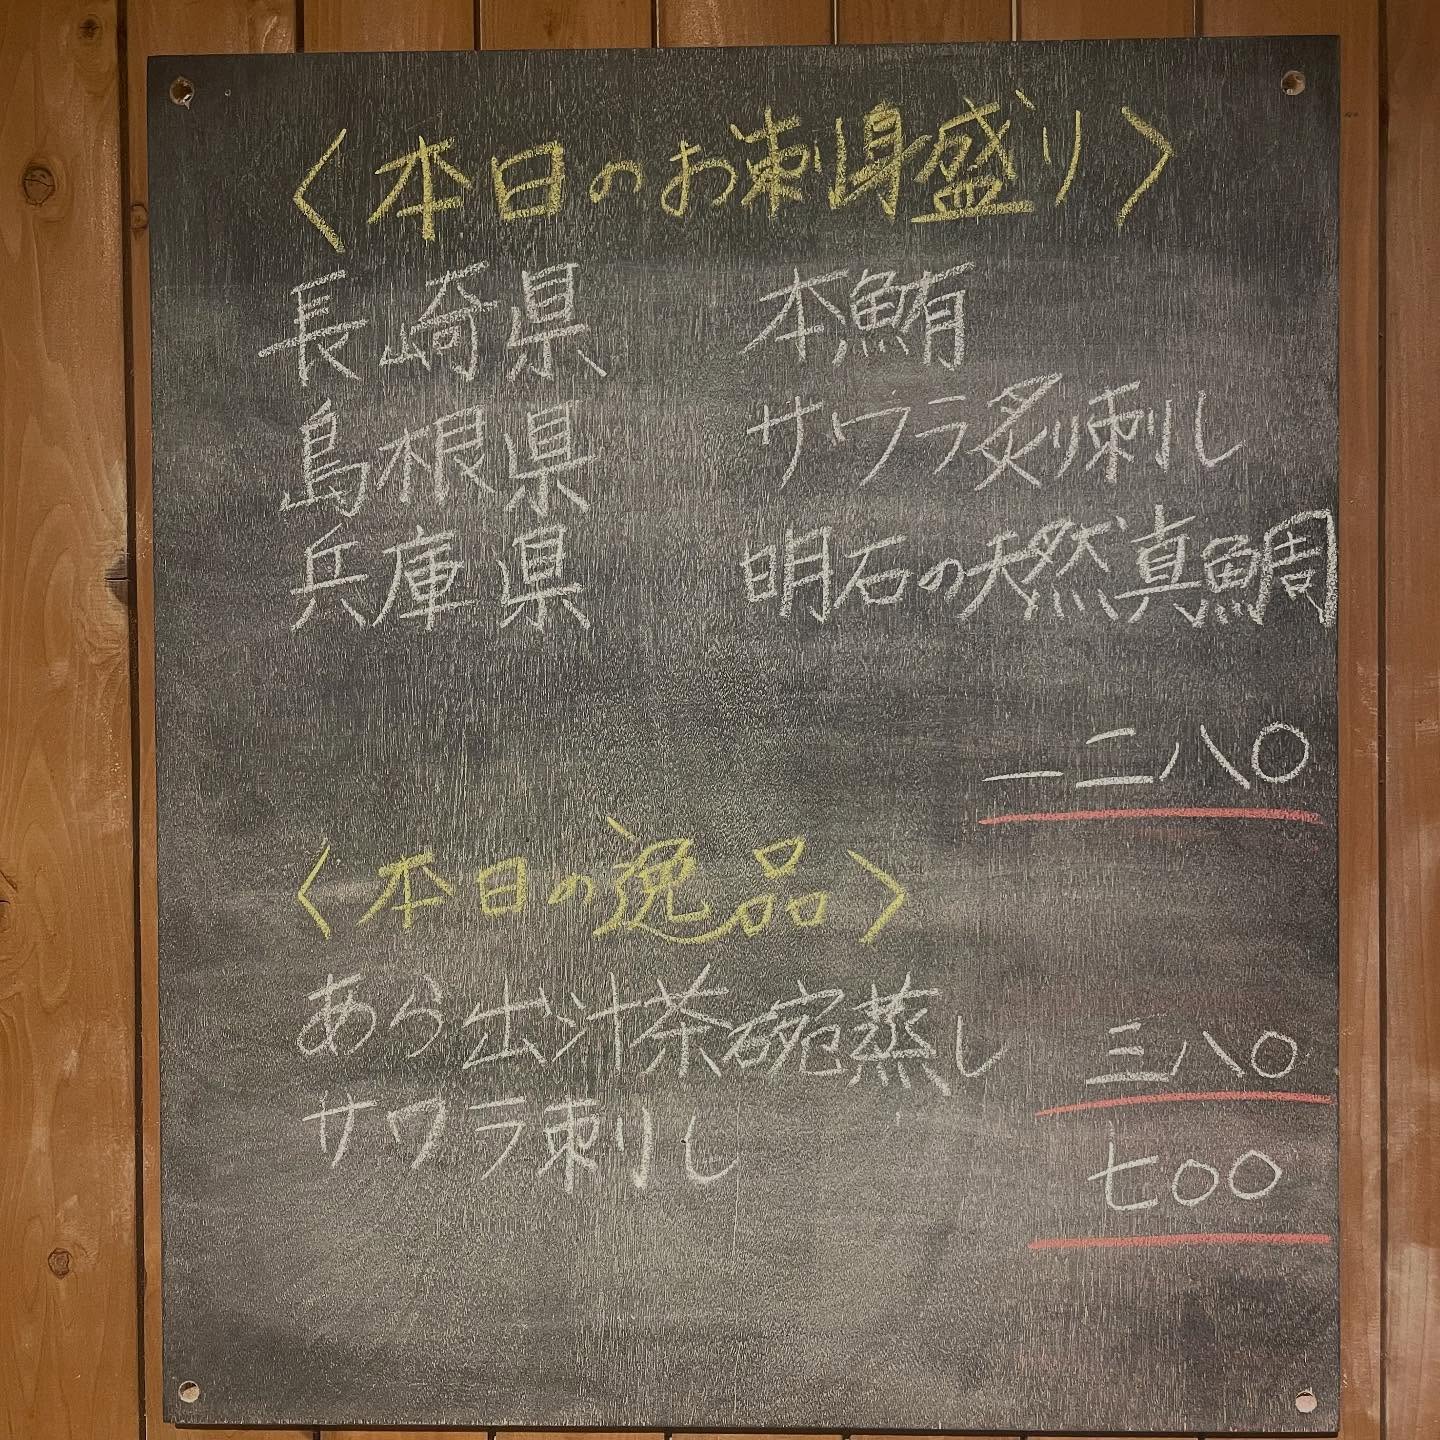 〈本日のお刺身盛り〉
長崎県 本鮪
島根県 サワラ炙り刺し
兵庫県 明石の天然真鯛
一二八〇
〈本日の逸品〉
あら出汁茶碗蒸し 三八〇
サワラ刺し 七〇〇